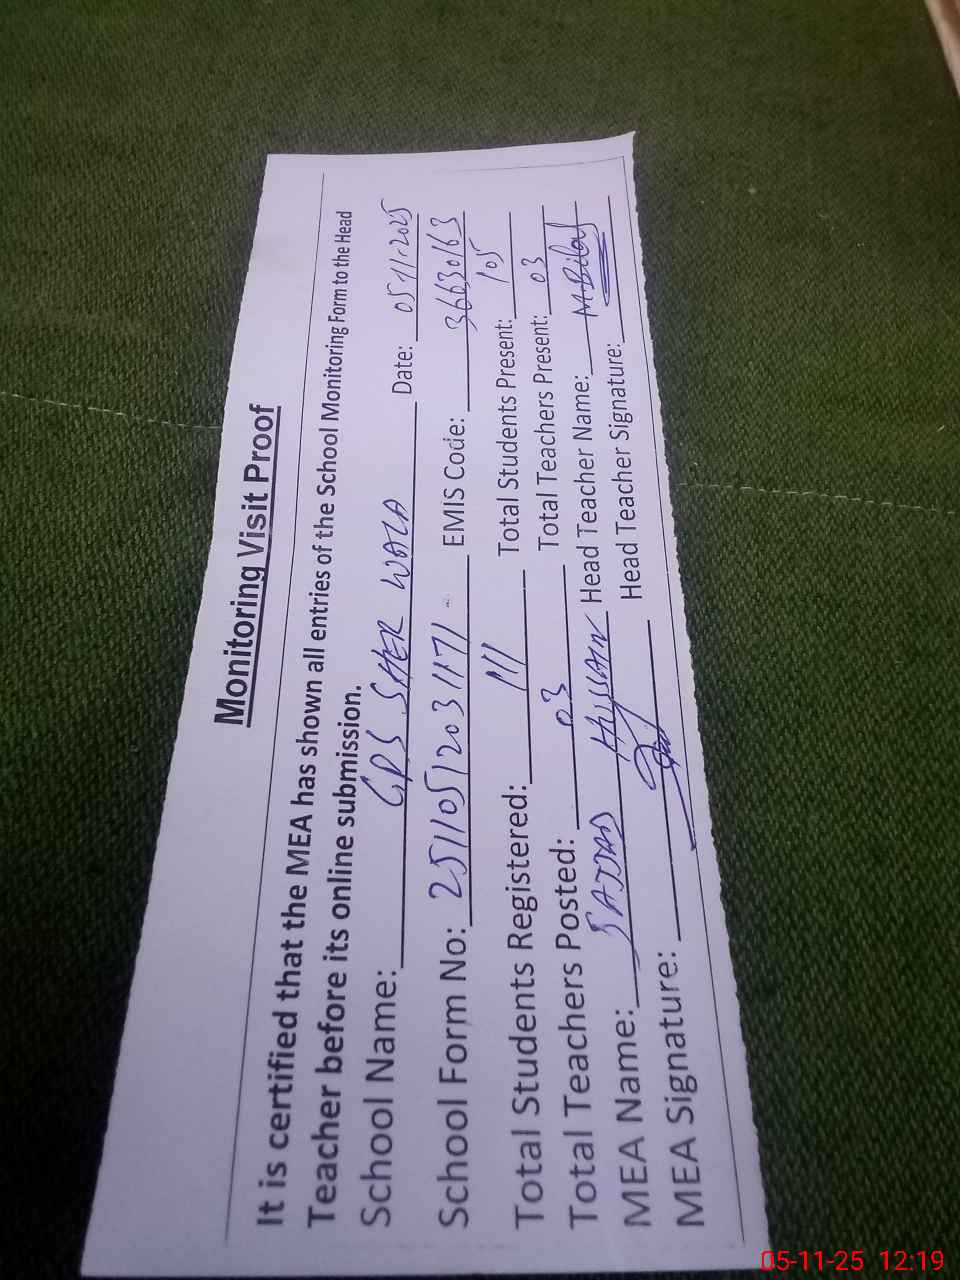 Monitoring Visit Proof
It is certified that the MEA has shown all entries of the School Monitoring Form to the Head
Teacher before its online submission.
School Name: GPS SHER WALA Date: 05-11-2025
School Form No: 25110512031171 EMIS Code: 36630163
Total Students Registered: 111 Total Students Present: 105
Total Teachers Posted: 03 Total Teachers Present: 03
MEA Name: SAJJAD HUSSAIN Head Teacher Name: M. Bilal
MEA Signature: Head Teacher Signature:
05-11-25 12:19